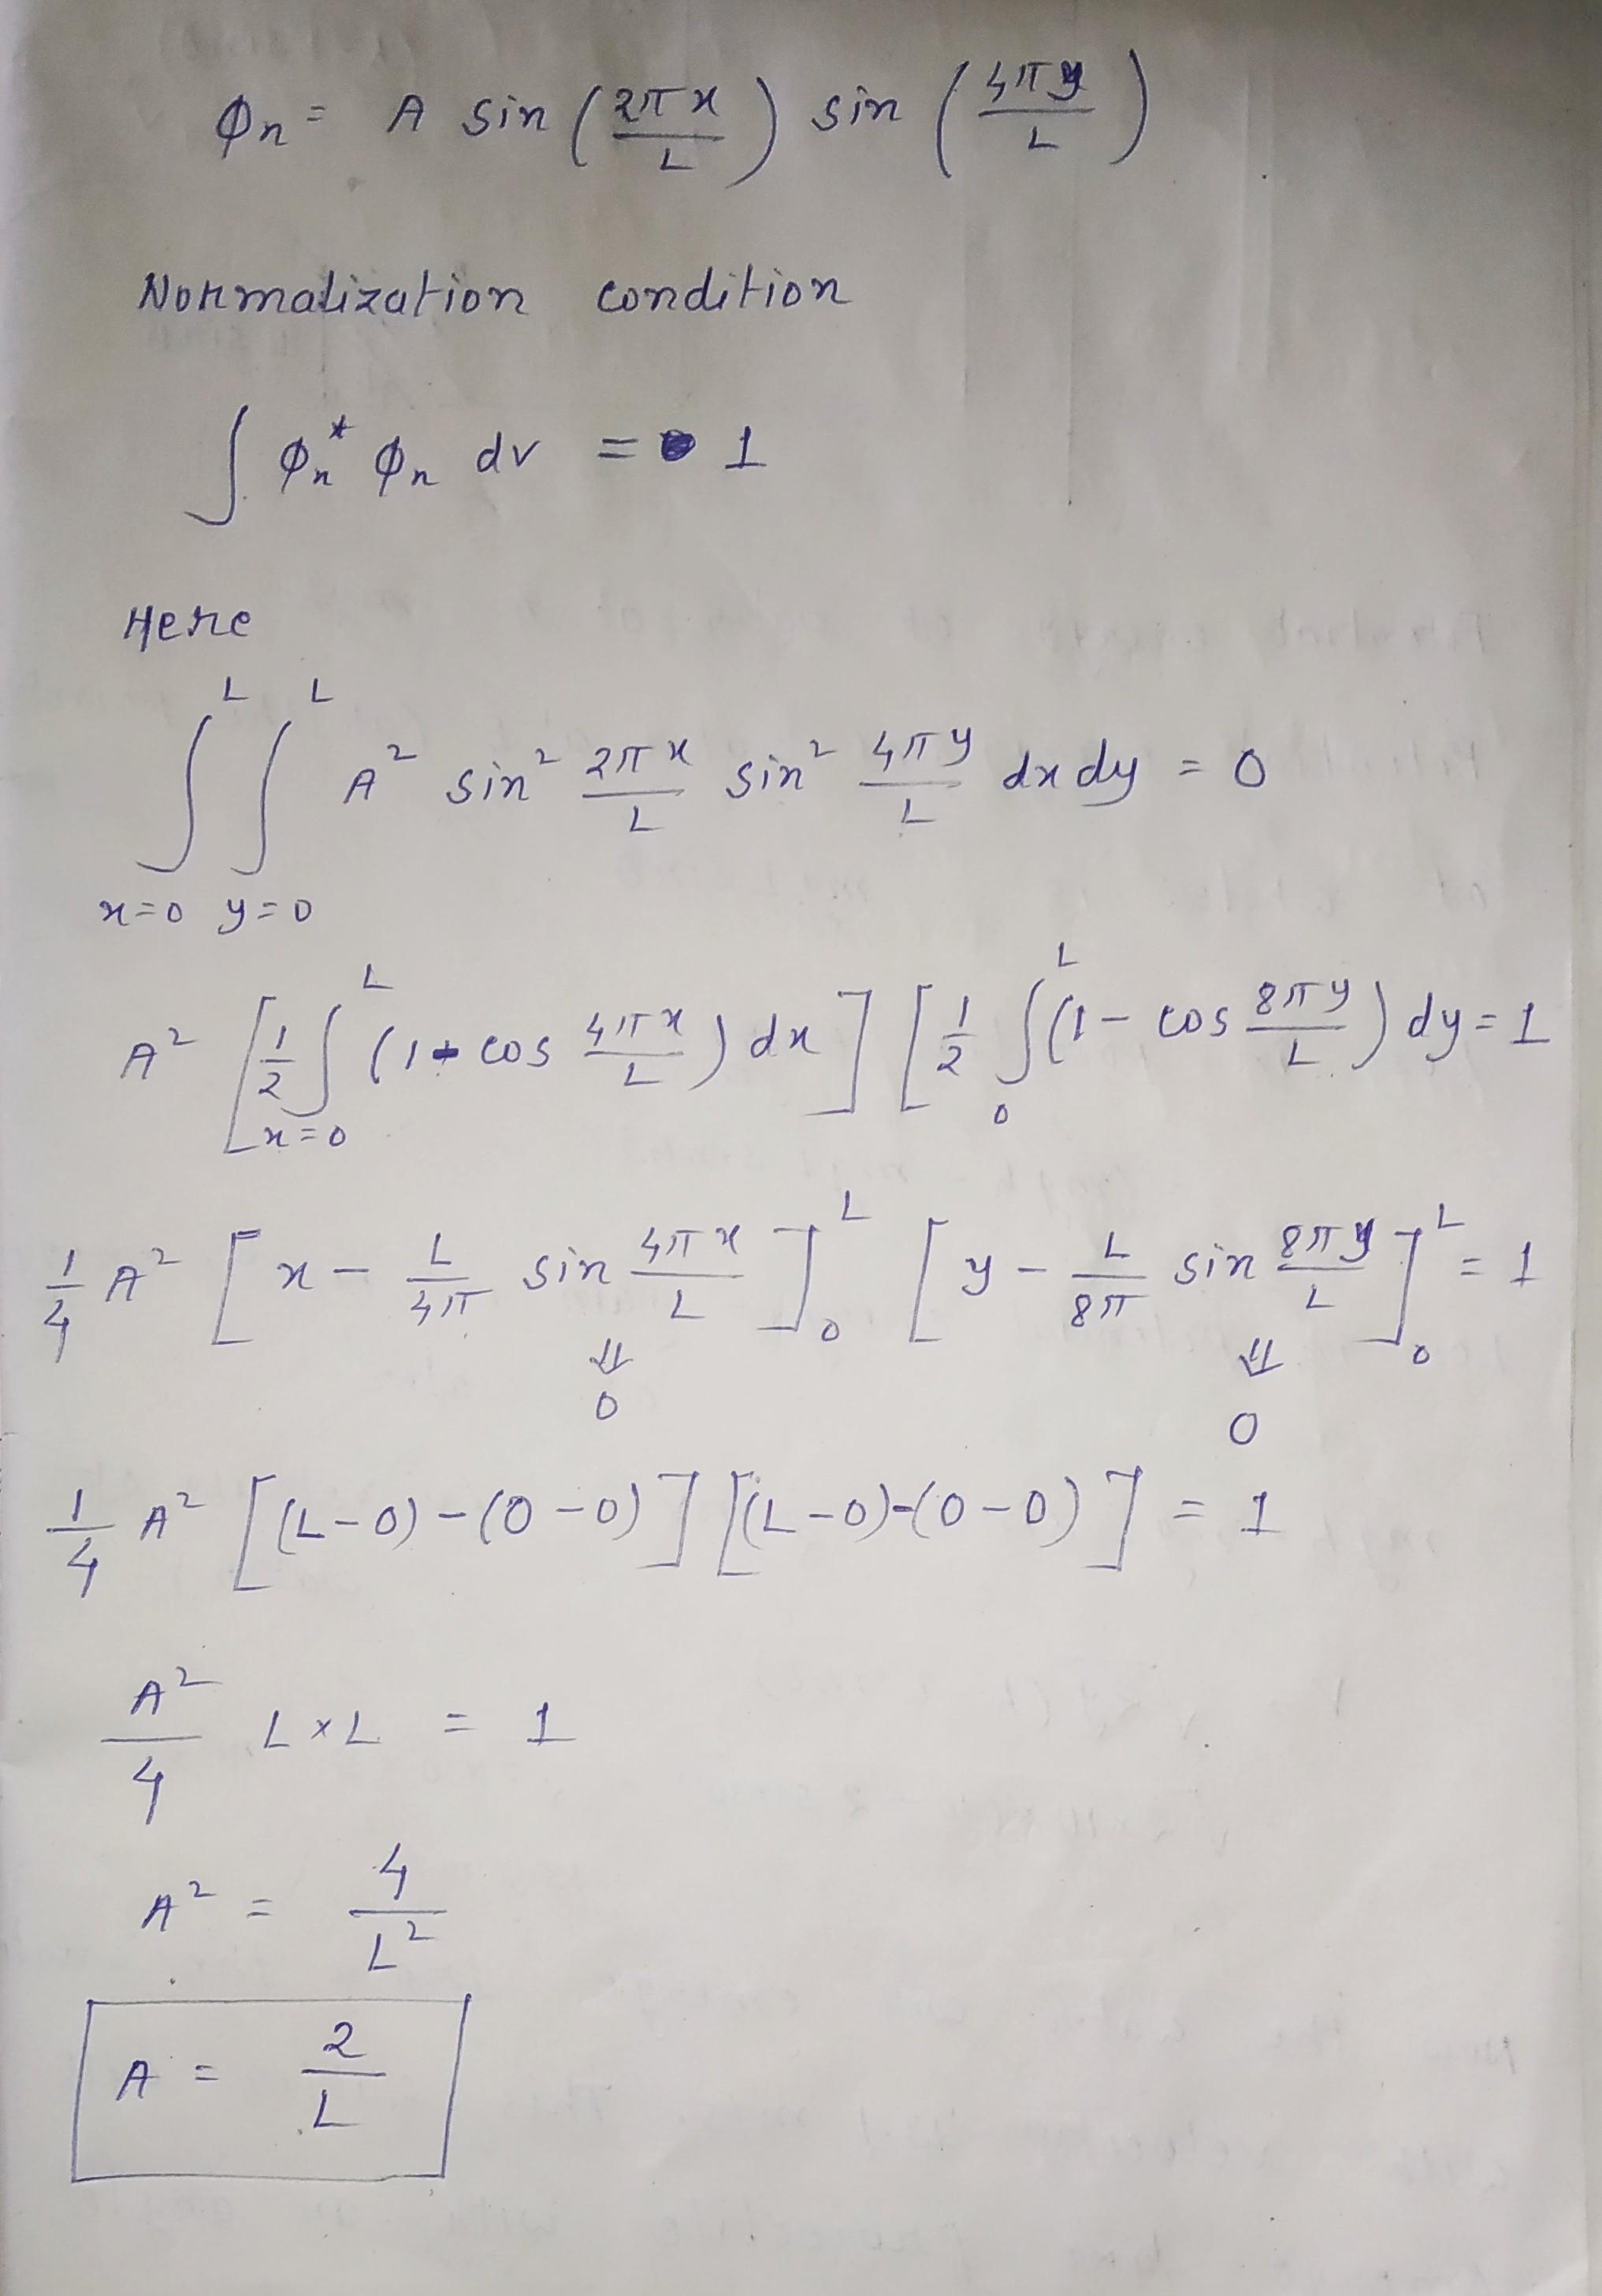 φn = A sin (2πx/L) sin (4πy/L)
Normalization condition
∫ φn* φn dv = 1
Here
∫_{x=0}^{L} ∫_{y=0}^{L} A² sin² 2πx/L sin² 4πy/L dx dy = 0
A² [1/2 ∫_{x=0}^{L} (1 - cos 4πx/L) dx] [1/2 ∫_0^L (1 - cos 8πy/L) dy = 1
1/4 A² [x - L/4π sin 4πx/L]_0^L [y - L/8π sin 8πy/L]_0^L = 1
⇓ ⇓
0 0
1/4 A² [(L-0)-(0-0)] [(L-0)-(0-0)] = 1
A²/4 L×L = 1
A² = 4/L²
A = 2/L